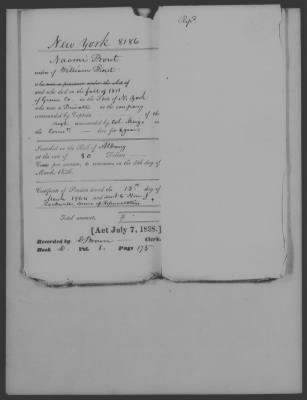 Rejd.
New York 8186
Naomi Prout
widow of William Prout
who was a pensioner under the Act of
and who died on the fall of 1811
of Greene Co. in the State of N. York
who was a Private in the company
commanded by Captain of the
regt commanded by Col. Meigs in
the Connt. line for 2 years
Inscribed on the Roll of Albany
at the rate of 80 Dollars
Cents per annum, to commence on the 4th day of
March, 1836.
Certificate of Pension issued the 13th day of
House of Representatives
Total amount, $
[Act July 7, 1838.]
Recorded by D. Brown Clerk,
Book D. Vol. 1. Page 175